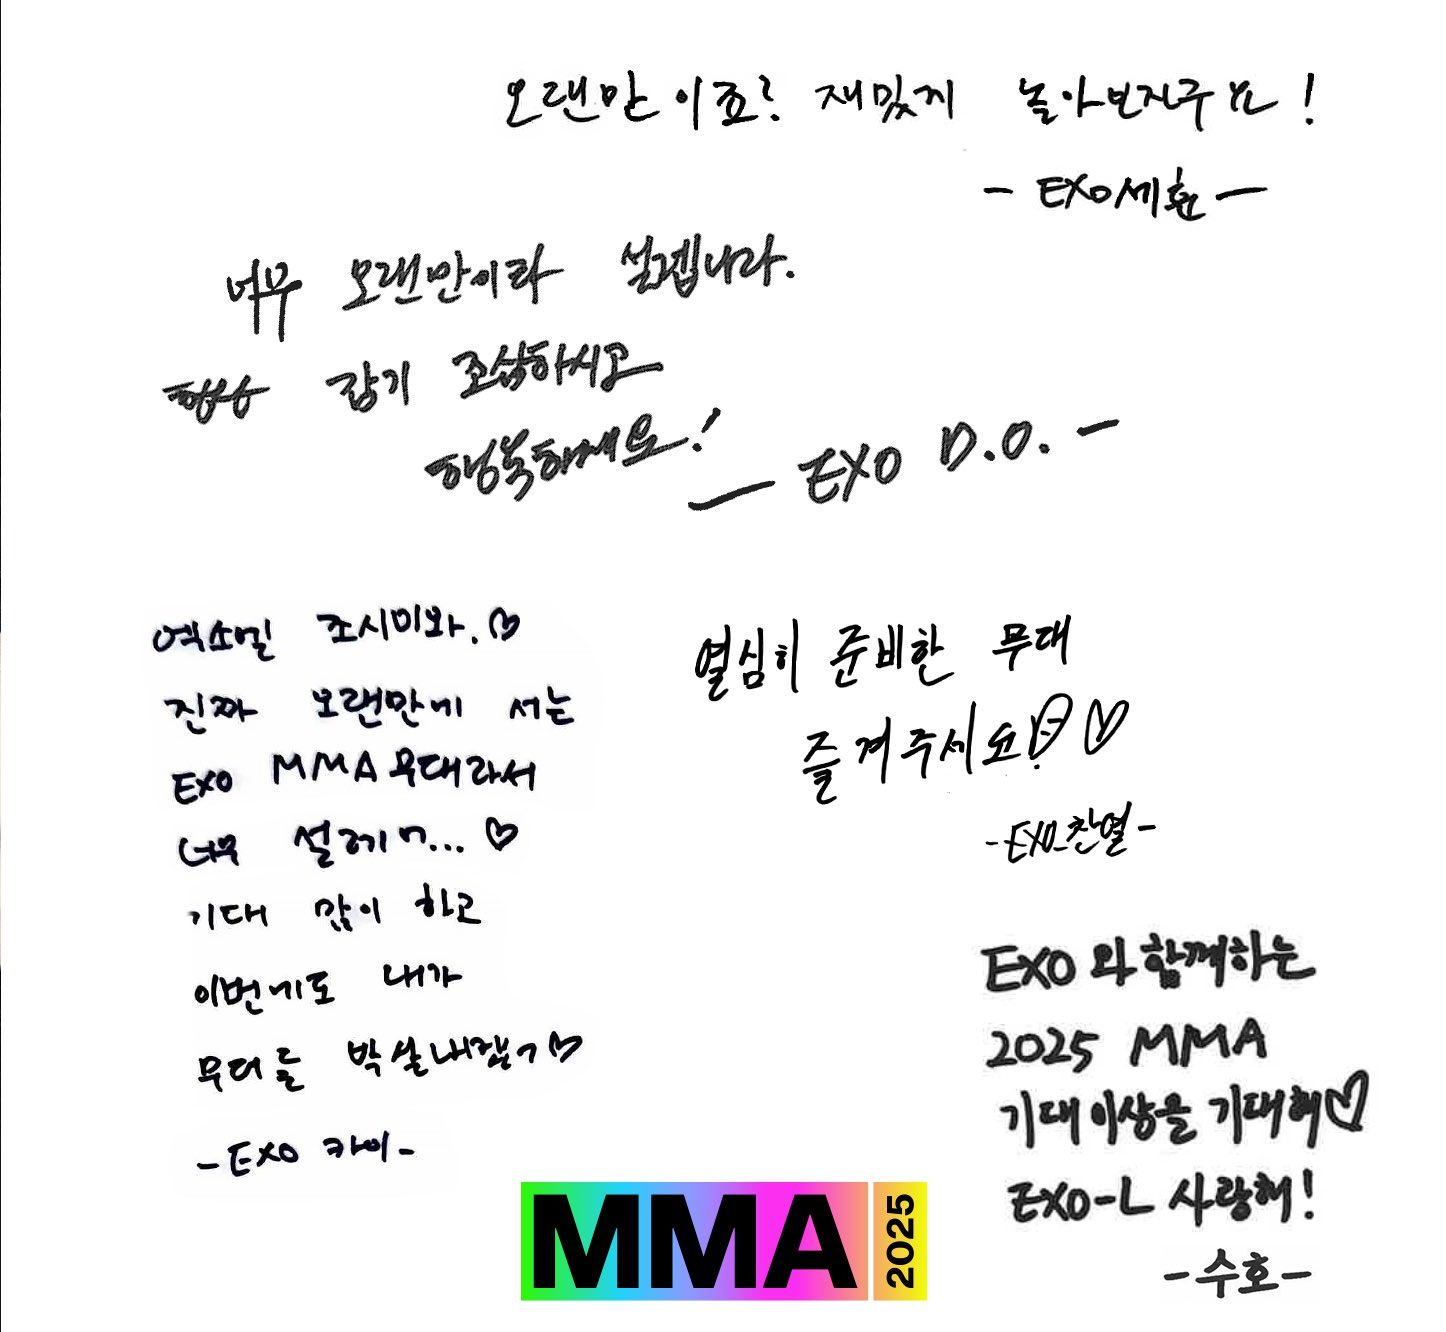 오랜만이죠? 재밌게 놀아보자구요!
- EXO 세훈 -
너무 오랜만이라 설렙니다.
감기 조심하시고
행복하세요!
- EXO D.O. -
엑소엘 조시미와.♡
진짜 오랜만에 서는
EXO MMA 무대라서
너무 설레ㅋ...♡
기대 많이 하고
이번에도 내가
무대를 박살내겠ㅋ♡
- EXO 카이 -
열심히 준비한 무대
즐겨주세요!♡
- EXO_찬열 -
EXO와 함께하는
2025 MMA
기대이상을 기대해♡
EXO-L 사랑해!
- 수호 -
MMA 2025